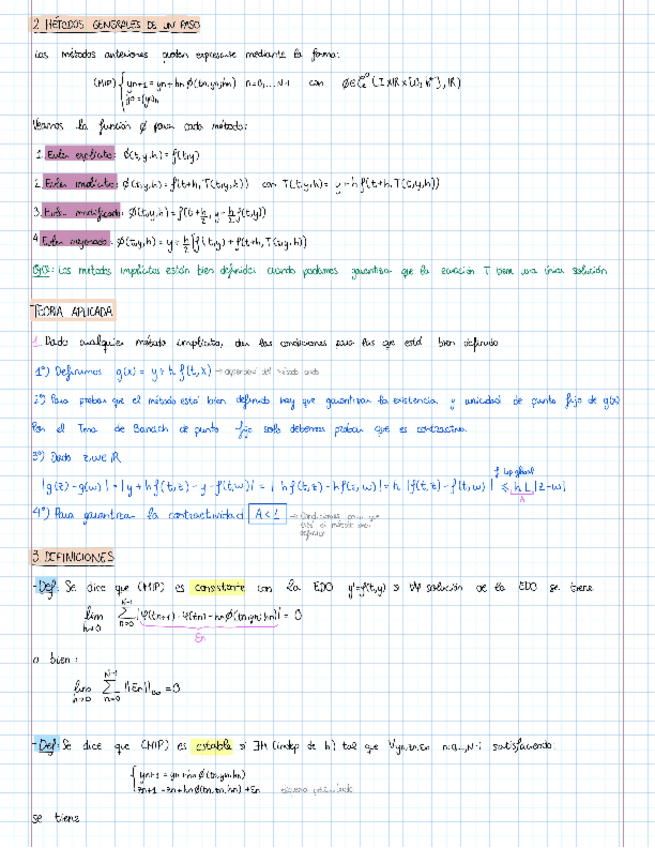 2. MÉTODOS GENERALES DE UN PASO
Los métodos anteriores pueden expresarse mediante la forma:
(MIP) { yn+1 = yn + hn ϕ(tn, yn, hn) n=0,...N-1 con ϕ∈
Veamos la función ϕ para cada método:
1. Euler explícito: ϕ(t,y,h) = f(t,y)
2. Euler implícito: ϕ(t,y,h) = f(t+h, T(t,y,h)) con T(t,y,h) = y + h f(t+h, T(t,y,h))
3. Euler modificado: ϕ(t,y,h) = f(t+h/2, y+h/2 f(t,y))
4. Euler mejorado: ϕ(t,y,h) = y + h/2 [f(t,y) + f(t+h, T(t,y,h))
Obs: Los métodos implícitos están bien definidos cuando podamos garantizar que la ecuación T tiene una única solución
TEORÍA APLICADA
1. Dado cualquier método implícito, dar las condiciones para las que está bien definido
1º) Definimos g(x) = y + h f(t,x) → dependerá del método dado
2º) Para probar que el método está bien definido hay que garantizar la existencia y unicidad de punto fijo de g(x)
Por el Tma de Banach de punto fijo solo debemos probar que es contractiva.
3º) Dado z,w∈ℝ
f lip global
|g(z)-g(w)| = |y + h f(t,z) - y - f(t,w)| = | h f(t,z) - h f(t,w)| = h |f(t,z) - f(t,w)| ≤ h L |z-w|
A
4º) Para garantizar la contractividad A<1 → Condiciones para que esté el método bien definido
3. DEFINICIONES
- Def: Se dice que (MIP) es consistente con la EDO y'=f(t,y) si ∀φ solución de la EDO se tiene
lim h→0 ∑ n=0 N-1 |φ(tn+1) - φ(tn) - hn ϕ(tn, yn, hn)| = 0
εn
o bien:
lim h→0 ∑ n=0 N-1 ||εn||∞ = 0
- Def: Se dice que (MIP) es estable si ∃M (indep de h) tal que ∀yn, zn, εn n=0,..,N-1 satisfaciendo:
{ yn+1 = yn + hn ϕ(tn, yn, hn)
zn+1 = zn + hn ϕ(tn, zn, hn) + εn
se tiene